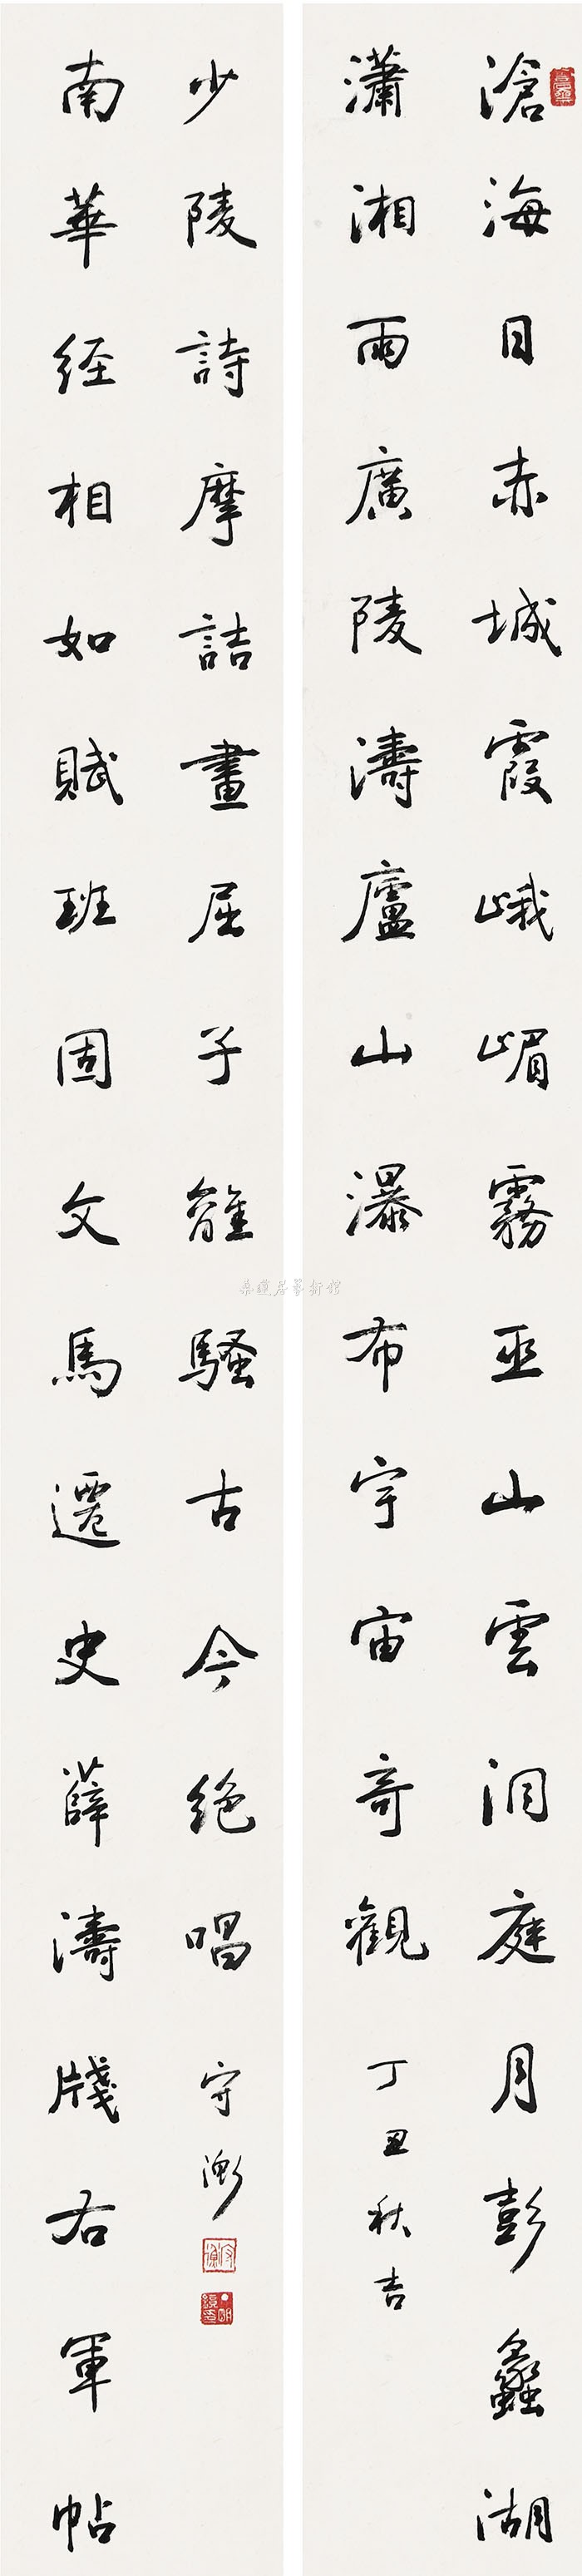 滄海日赤城霞峨嵋霧巫山雲洞庭月彭蠡湖
瀟湘雨廣陵濤廬山瀑布宇宙奇觀
丁丑秋吉
南華経相如賦班固文馬遷史薛濤牋右軍帖
少陵詩摩詰畫屈子離騷古今絶唱
守
桑蓮居藝術馆